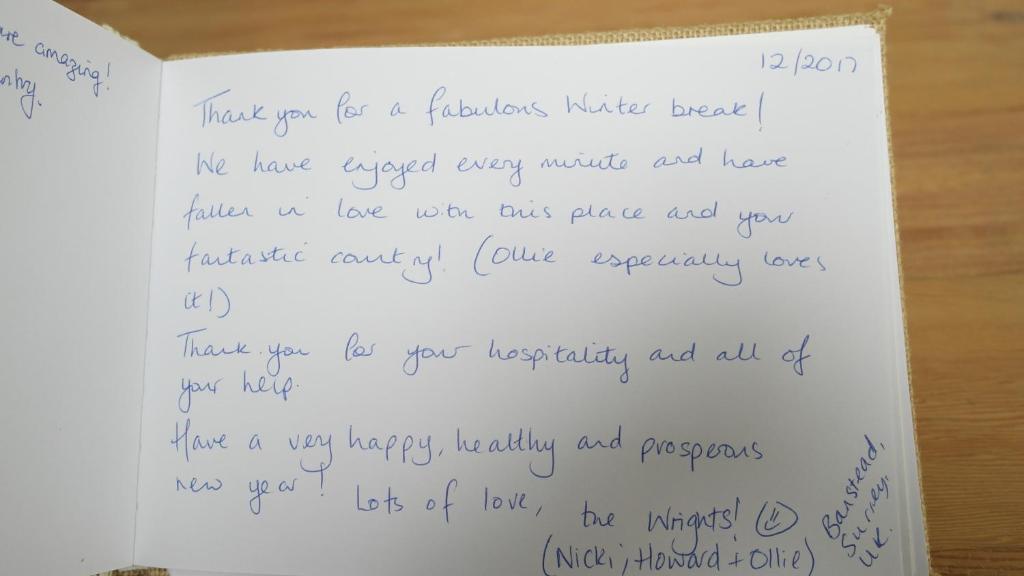 are amazing!
12/2017
Thank you for a fabulous Winter break!
We have enjoyed every minute and have
fallen in love with this place and your
fantastic country! (Ollie especially loves
it!)
Thank you for your hospitality and all of
your help.
Have a very happy, healthy and prosperous
new year!
Lots of love,
the Wrights!
(Nicki, Howard + Ollie)
Banstead,
Surrey,
UK.